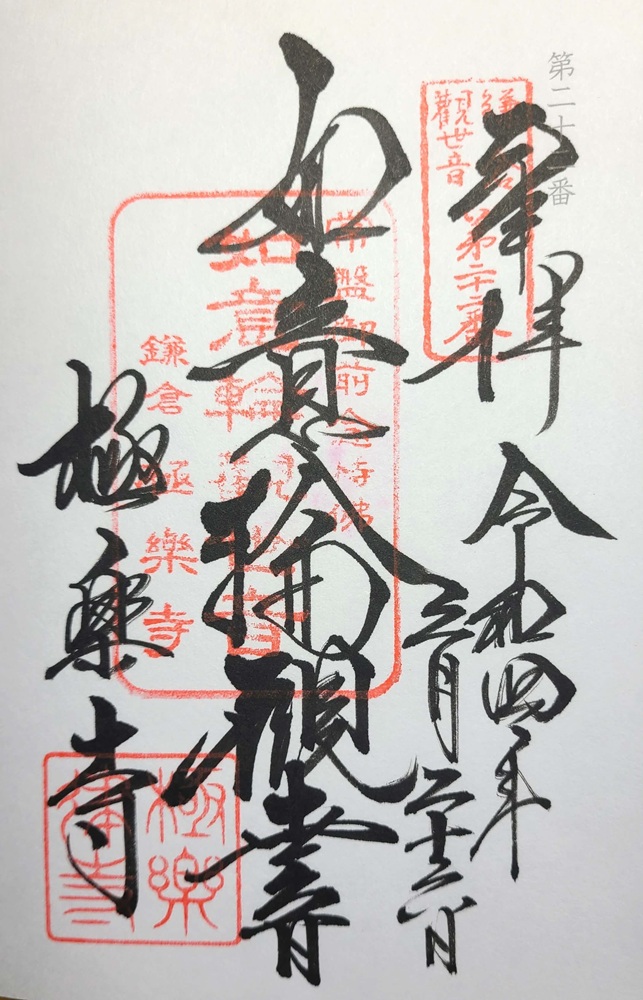 第二十二番
奉拝
鎌倉
観世音
第二十二番
令和四年
三月二十六日
如意輪観世音
常盤御前念持佛
如意輪観世音
鎌倉 極樂寺
極楽寺
極樂